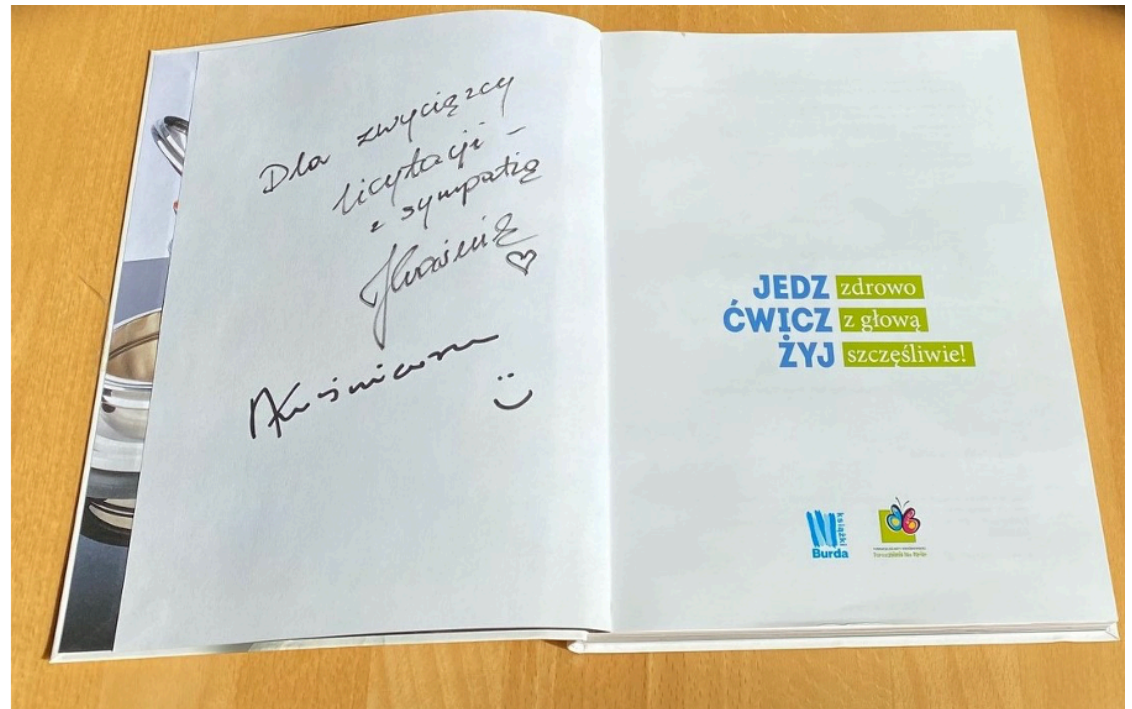 Dla zwycięzcy
licytacji –
z sympatią
JEDZ zdrowo
ĆWICZ z głową
ŻYJ szczęśliwie!
książki
Burda